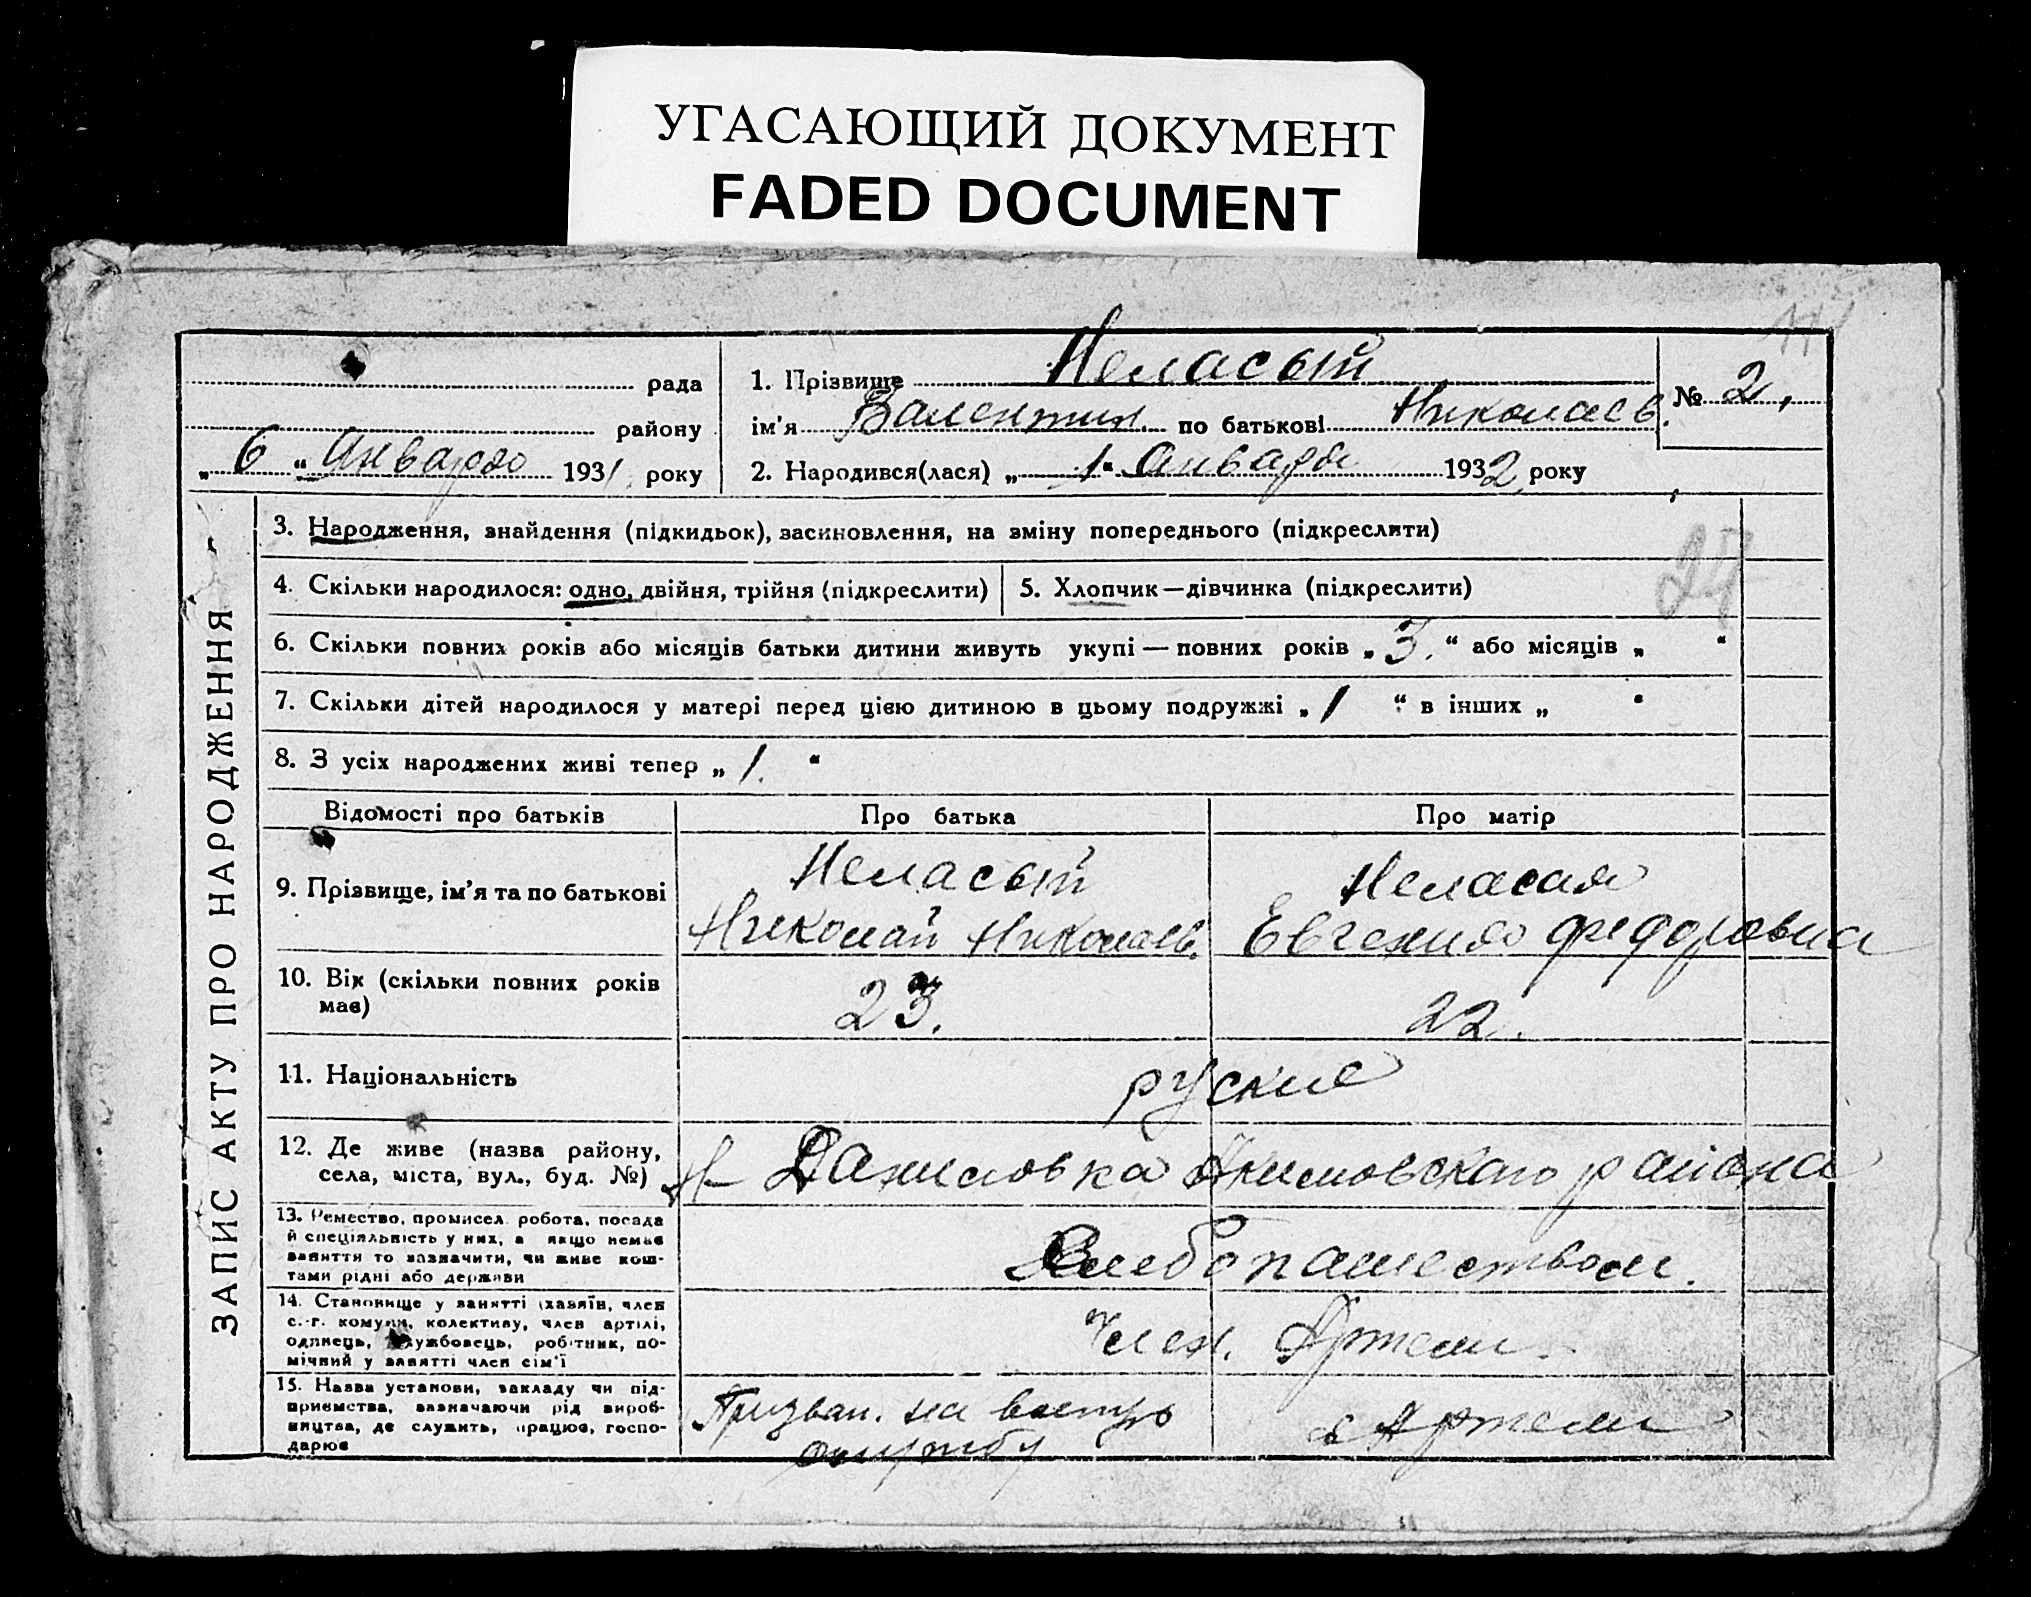 УГАСАЮЩИЙ ДОКУМЕНТ
FADED DOCUMENT
рада
району
„ 6 “ Января 1931 року
1. Прізвище Неласый
ім'я Валентин. по батькові Николаев.
2. Народився(лася) „ 1 “ Января 1932 року
№ 2,
ЗАПИС АКТУ ПРО НАРОДЖЕННЯ
3. Народження, знайдення (підкидьок), засиновлення, на зміну попереднього (підкреслити)
4. Скільки народилося: одно, двійня, трійня (підкреслити)
5. Хлопчик—дівчинка (підкреслити)
6. Скільки повних років або місяців батьки дитини живуть укупі — повних років „ 3. “ або місяців „ “
7. Скільки дітей народилося у матері перед цією дитиною в цьому подружжі „ 1 “ в інших „ “
8. З усіх народжених живі тепер „ 1. “
Відомості про батьків
Про батька
Про матір
9. Прізвище, ім'я та по батькові
Неласый
Николай Николаев.
Неласая
Евгения Федоровна
10. Вік (скільки повних років
має)
23.
22.
11. Національність
руские
12. Де живе (назва району,
села, міста, вул., буд. №)
Н- Даниловка Акимовскаго района
13. Ремество, промисел, робота, посада
й спеціяльність у них, а якщо немає
заняття то зазначити, чи живе кош-
тами рідні або держави
Хлебопашеством.
14. Становище у занятті (хазяїн, член
с.-г. комуни, колективу, член артілі,
одинець, службовець, робітник, по-
мічний у занятті член сім'ї
Член. Артели.
15. Назва установи, закладу чи під-
приємства, зазначаючи рід вироб-
ництва, де служить, працює, госпо-
дарює
Призван. на
службу
в Артели